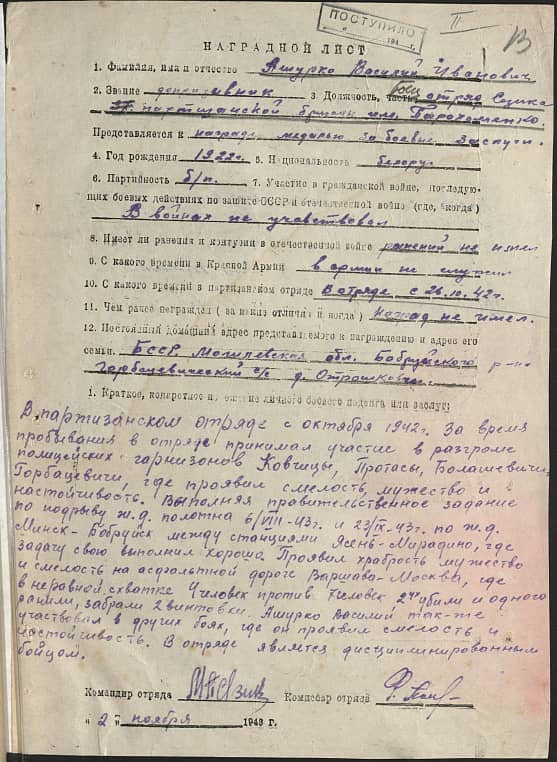 ПОСТУПИЛО
194 г.
II
НАГРАДНОЙ ЛИСТ
1. Фамилия, имя и отчество Ашурко Василий Иванович
2. Звание 3. Должность, часть отряд
партизанской бригады им. Пархоменко.
Представляется к награде медалью за боевые заслуги.
4. Год рождения 1922г. 5. Национальность белорус
6. Партийность б/п. 7. Участие в гражданской войне, последую-
щих боевых действиях по защите СССР и отечественной войне (где, когда)
В войнах не участвовал
8. Имеет ли ранения и контузии в отечественной войне ранений не имел
9. С какого времени в Красной Армии в армии не служил
10. С какого времени в партизанском отряде В отряде с 26.10.42г.
11. Чем ранее награжден (за какие отличия и когда) Наград не имел.
12. Постоянный домашний адрес представляемого к награждению и адрес его
семьи. БССР Могилевская обл. Бобруйского р-на
Горбацевический с/с д. Отрошковичи
1. Краткое, конкретное изложение личного боевого подвига или заслуг:
В партизанском отряде с октября 1942г. За время
пробывания в отряде принимал участие в разгроме
полицейских гарнизонов Ковчицы, Протасы, Болашевичи
Горбацевичи, где проявил смелость, мужество и
настойчивость. Выполняя правительственное задание
по подрыву ж.д. полотна 6/VIII-43г. и 23/IX-43г. по ж.д.
Минск-Бобруйск между станциями Ясень-Мирадино, где
задачу свою выполнил хорошо. Проявил храбрость мужество
и смелость на асфальтной дороге Варшава-Москва, где
в неравной схватке человек против человек 2х убили и одного
ранили, забрали 2 винтовки. Ашурко Василий так-же
участвовал в других боях, где он проявил смелость и
настойчивость. В отряде является дисциплинированным
бойцом.
Командир отряда Комиссар отряда
"2" ноября 1943 г.